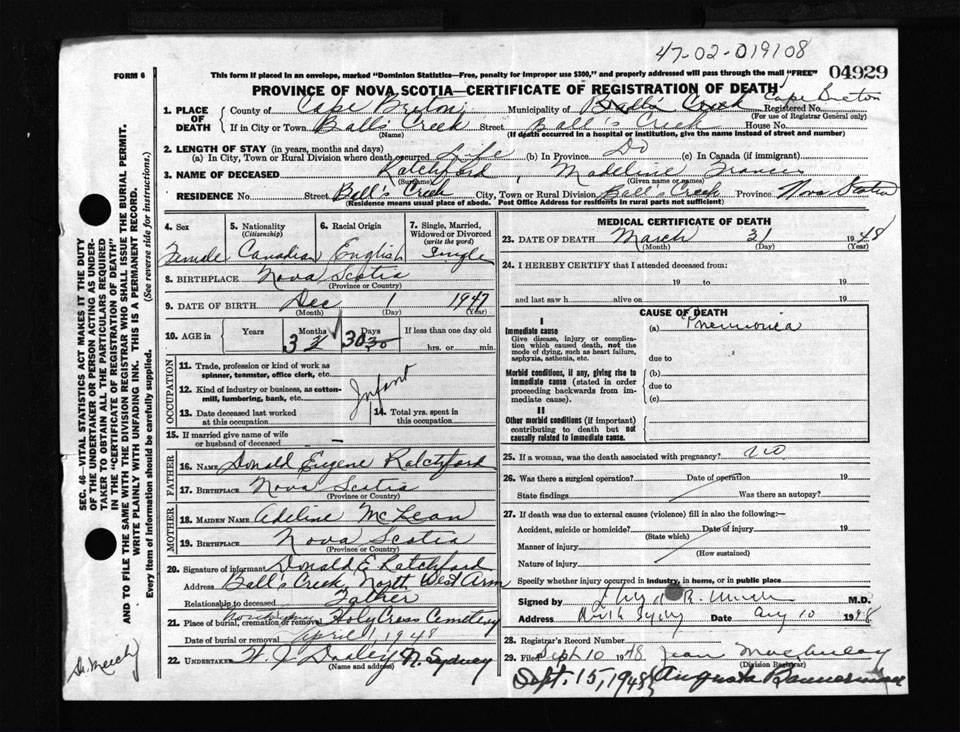 47-02-019108
FORM 6
This form if placed in an envelope, marked "Dominion Statistics—Free, penalty for improper use $300," and properly addressed will pass through the mail "FREE"
04929
PROVINCE OF NOVA SCOTIA—CERTIFICATE OF REGISTRATION OF DEATH
Cape Breton
1. PLACE OF DEATH
County of Cape Breton Municipality of Ball's Creek Registered No.
(For use of Registrar General only)
If in City or Town Ball's Creek Street Ball's Creek House No.
(Name) (If death occurred in a hospital or institution, give the name instead of street and number)
2. LENGTH OF STAY (in years, months and days)
(a) In City, Town or Rural Division where death occurred Life (b) In Province Do (c) In Canada (if immigrant)
3. NAME OF DECEASED Ratchford, Madeline Frances
(Surname) (Given name or names)
RESIDENCE No. Street Ball's Creek City, Town or Rural Division Ball's Creek Province Nova Scotia
(Residence means usual place of abode. Post Office Address for residents in rural parts not sufficient)
4. Sex 5. Nationality (Citizenship) 6. Racial Origin 7. Single, Married, Widowed or Divorced (write the word)
Female Canadian English Single
8. BIRTHPLACE Nova Scotia
(Province or Country)
9. DATE OF BIRTH Dec 1 1947
(Month) (Day) (Year)
10. AGE in Years Months Days If less than one day old
3 30 hrs. or min.
OCCUPATION
11. Trade, profession or kind of work as spinner, teamster, office clerk, etc.
12. Kind of industry or business, as cotton-mill, lumbering, bank, etc.
Infant
13. Date deceased last worked at this occupation
14. Total yrs. spent in this occupation
15. If married give name of wife or husband of deceased —
FATHER
16. NAME Donald Eugene Ratchford
17. BIRTHPLACE Nova Scotia
(Province or Country)
MOTHER
18. MAIDEN NAME Adeline McLean
19. BIRTHPLACE Nova Scotia
(Province or Country)
20. Signature of informant Donald E Ratchford
Address Ball's Creek, North West Arm
Relationship to deceased Father
21. Place of burial, cremation or removal Holy Cross Cemetery
Date of burial or removal April 1, 1948
22. UNDERTAKER N. Sydney
(Name and address)
MEDICAL CERTIFICATE OF DEATH
23. DATE OF DEATH March 31 1948
(Month) (Day) (Year)
24. I HEREBY CERTIFY that I attended deceased from:
19 to 19
and last saw h alive on 19
CAUSE OF DEATH
I
Immediate cause
Give disease, injury or complication which caused death, not the mode of dying, such as heart failure, asphyxia, asthenia, etc.
(a) Pneumonia
due to
Morbid conditions, if any, giving rise to immediate cause (stated in order proceeding backwards from immediate cause).
(b)
due to
(c)
II
Other morbid conditions (if important) contributing to death but not causally related to immediate cause.
25. If a woman, was the death associated with pregnancy? no
26. Was there a surgical operation? Date of operation 19
State findings Was there an autopsy?
27. If death was due to external causes (violence) fill in also the following:—
Accident, suicide or homicide? Date of injury 19
(State which)
Manner of injury
(How sustained)
Nature of injury
Specify whether injury occurred in industry, in home, or in public place
Signed by M.D.
Address North Sydney Date Aug 10 1948
28. Registrar's Record Number
29. Filed Sept 10 1948 Jean
(Division Registrar)
Sept. 15, 1948 Augusta Bannerman
SEC. 46—VITAL STATISTICS ACT MAKES IT THE DUTY
OF THE UNDERTAKER OR PERSON ACTING AS UNDER-
TAKER TO OBTAIN ALL THE PARTICULARS REQUIRED
IN THE "CERTIFICATE OF REGISTRATION OF DEATH"
AND TO FILE THE SAME WITH THE DIVISION REGISTRAR WHO SHALL ISSUE THE BURIAL PERMIT.
WRITE PLAINLY WITH UNFADING INK. THIS IS A PERMANENT RECORD.
Every item of information should be carefully supplied. (See reverse side for instructions.)